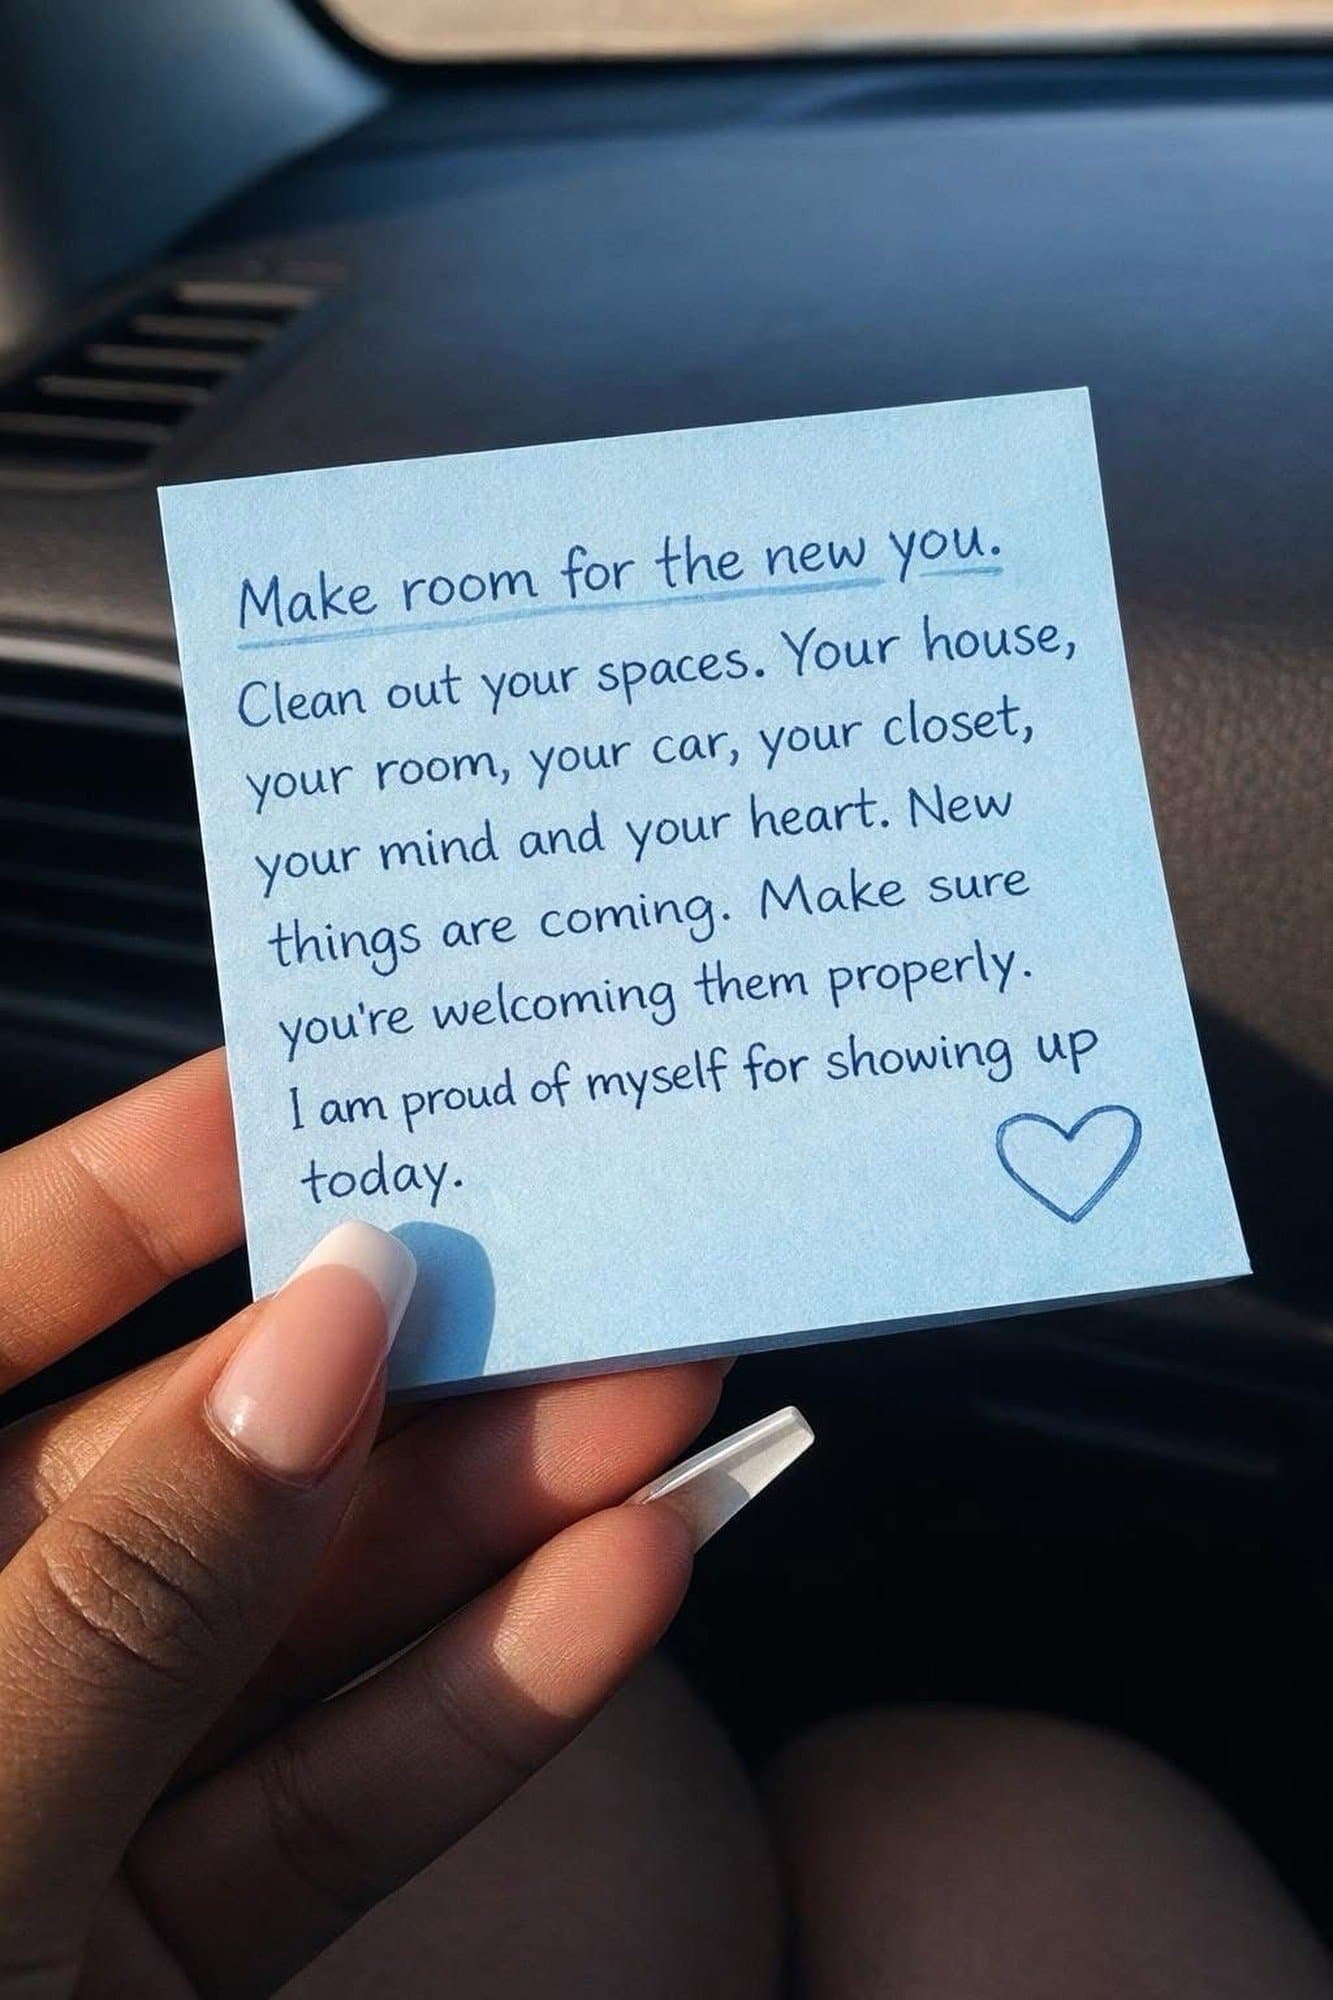 Make room for the new you.
Clean out your spaces. Your house,
your room, your car, your closet,
your mind and your heart. New
things are coming. Make sure
you're welcoming them properly.
I am proud of myself for showing up
today.